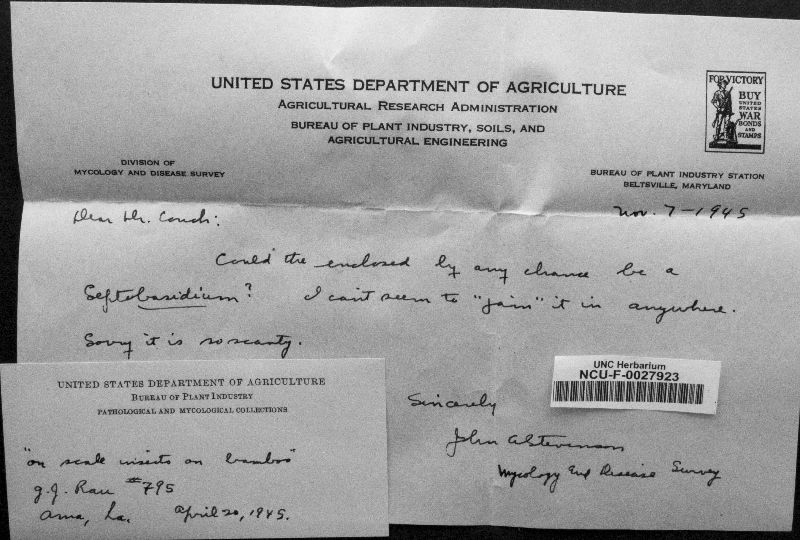 UNITED STATES DEPARTMENT OF AGRICULTURE
AGRICULTURAL RESEARCH ADMINISTRATION
BUREAU OF PLANT INDUSTRY, SOILS, AND
AGRICULTURAL ENGINEERING
FOR VICTORY
BUY
UNITED
STATES
WAR
BONDS
AND
STAMPS
DIVISION OF
MYCOLOGY AND DISEASE SURVEY
BUREAU OF PLANT INDUSTRY STATION
BELTSVILLE, MARYLAND
Nov. 7-1945
Dear Dr. Couch:
Could the enclosed by any chance be a
Septobasidium? I can't seem to "jam" it in anywhere.
Sorry it is so scanty.
UNC Herbarium
NCU-F-0027923
Sincerely
John A Stevenson
Mycology and Disease Survey
UNITED STATES DEPARTMENT OF AGRICULTURE
BUREAU OF PLANT INDUSTRY
PATHOLOGICAL AND MYCOLOGICAL COLLECTIONS
"on scale insects on bamboo"
G.J. Rau #795
Ama, La. April 20, 1945.